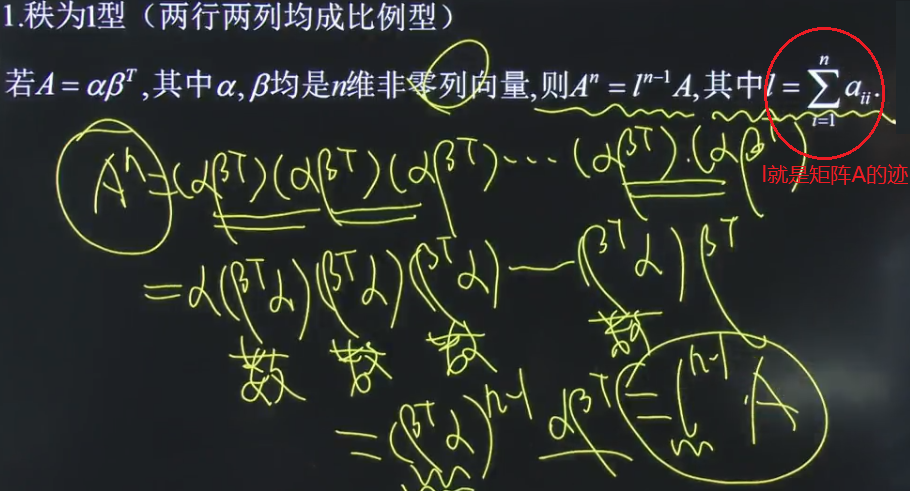 1.秩为1型（两行两列均成比例型）
若A = αβᵀ,其中α,β均是n维非零列向量,则Aⁿ = lⁿ⁻¹A,其中l = ∑ⁿᵢ₌₁ aᵢᵢ.
l就是矩阵A的迹
Aⁿ = (αβᵀ)(αβᵀ)(αβᵀ)···(αβᵀ)·(αβᵀ)
= α(βᵀα)(βᵀα)(βᵀα)—(βᵀα)βᵀ
= (βᵀα)ⁿ⁻¹ αβᵀ = lⁿ⁻¹ A